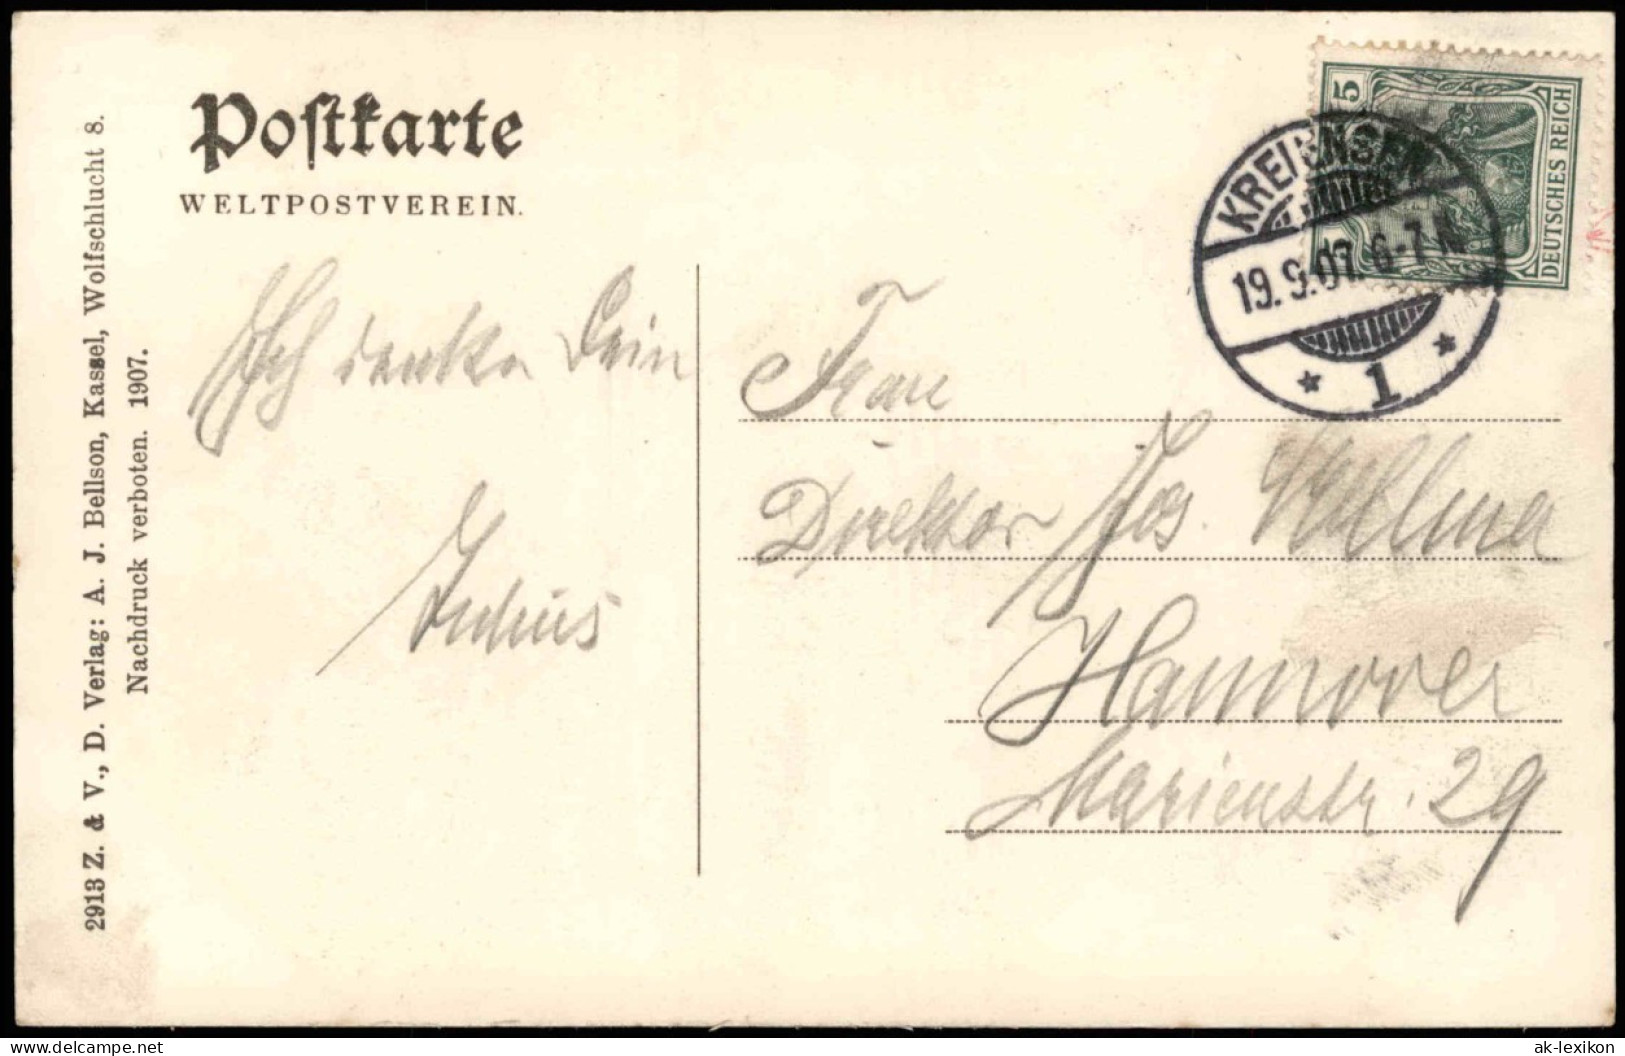 Postkarte
WELTPOSTVEREIN.
2913 Z. & V., D. Verlag: A. J. Bellson, Kassel, Wolfschlucht 8.
Nachdruck verboten. 1907.
5
DEUTSCHES REICH
5
KREIENSEN
19.9.07. 6-7 N
* 1 *
Ich denke Dein
Julius
Frau
Direktor Jos.
Hannover
Marienstr. 29
www.delcampe.net
ak-lexikon